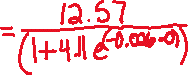 = 12.57
(1+4.11 e^(-0.026-0))